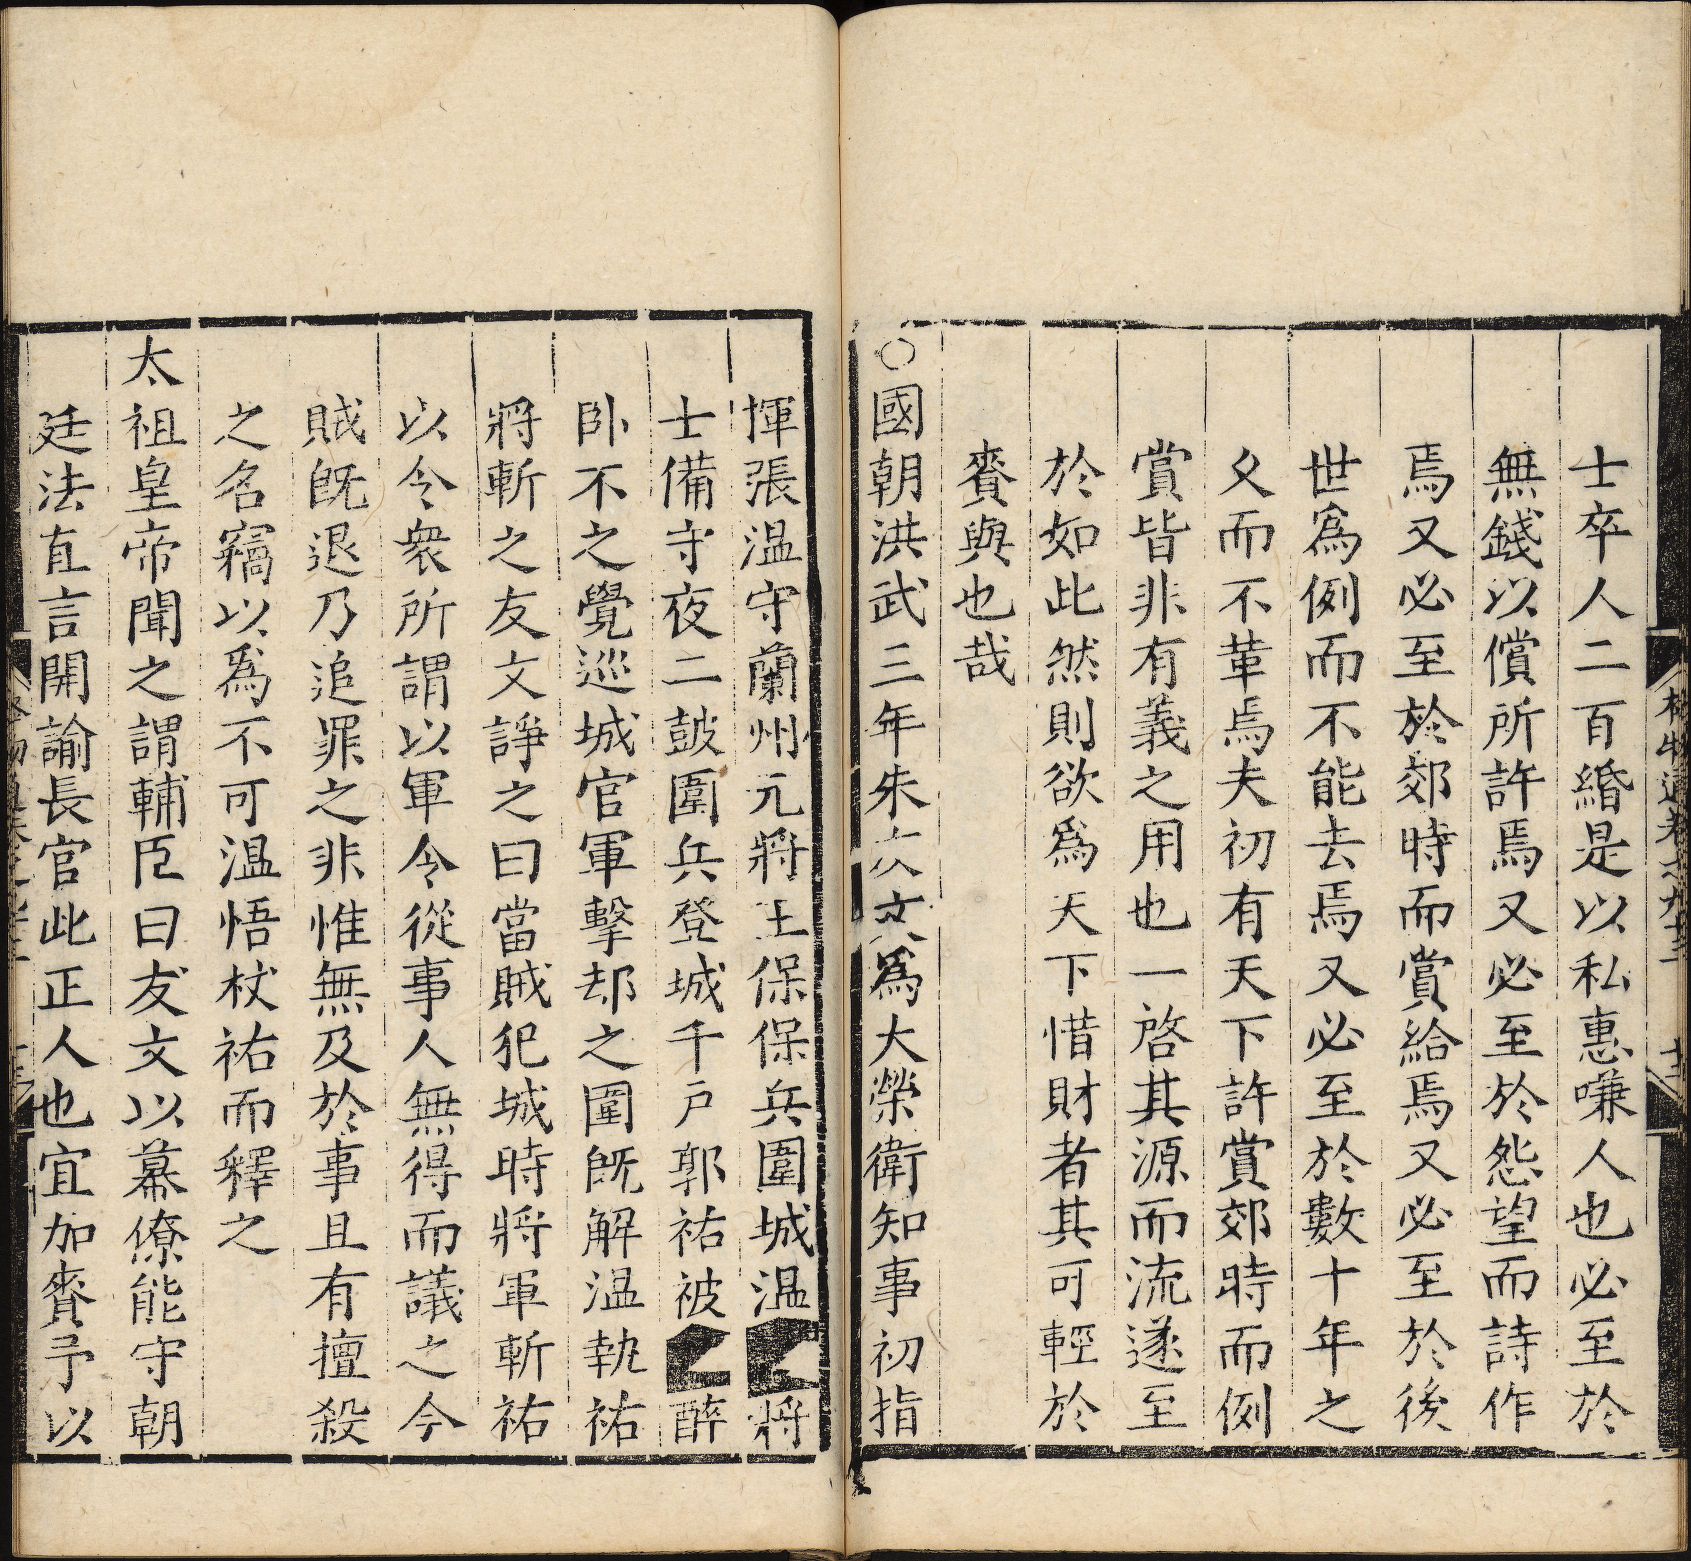 士卒人二百緡是以私惠嗛人也必至於
無錢以償所許焉又必至於怨望而詩作
焉又必至於郊時而賞給焉又必至於後
世爲例而不能去焉又必至於數十年之
久而不革焉夫初有天下許賞郊時而例
賞皆非有義之用也一啓其源而流遂至
於如此然則欲爲天下惜財者其可輕於
賚與也哉
○國朝洪武三年朱友文爲大榮衛知事初指
揮張温守蘭州元將王保保兵圍城温將
士備守夜二鼓圍兵登城千戶郭祐被醉
卧不之覺巡城官軍擊却之圍既解温執祐
將斬之友文諍之曰當賊犯城時將軍斬祐
以令衆所謂以軍令從事人無得而議之今
賊既退乃追罪之非惟無及於事且有擅殺
之名竊以爲不可温悟杖祐而釋之
太祖皇帝聞之謂輔臣曰友文以幕僚能守朝
廷法直言開諭長官此正人也宜加賚予以